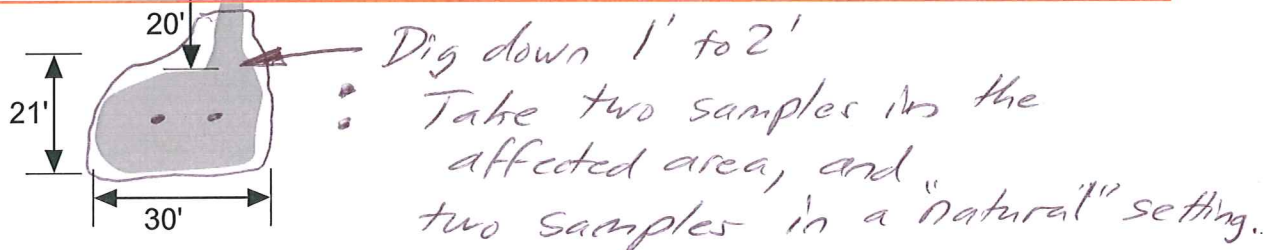 20'
21'
30'
Dig down 1' to 2'
Take two samples in the
affected area, and
two samples in a "natural" setting.